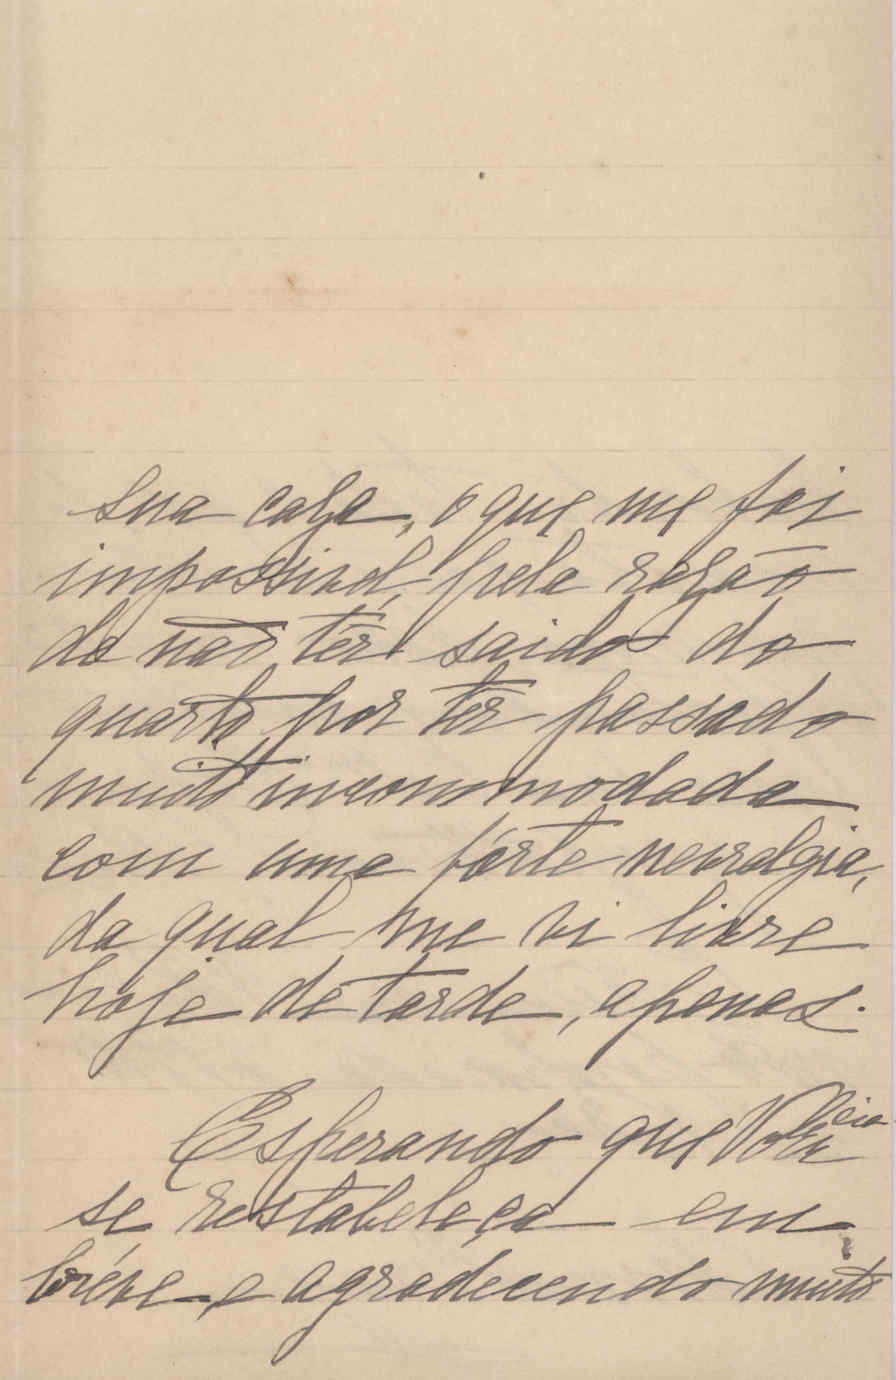 sua caza, o que me foi
impossivel, pela razão
de não têr saido do
quarto por têr passado
muito incommodada
com uma fórte nevralgia,
da qual me vi livre
hoje de tarde, apenas.
Esperando que V. Excia.
se restabeleça em
bréve e agradecendo muito